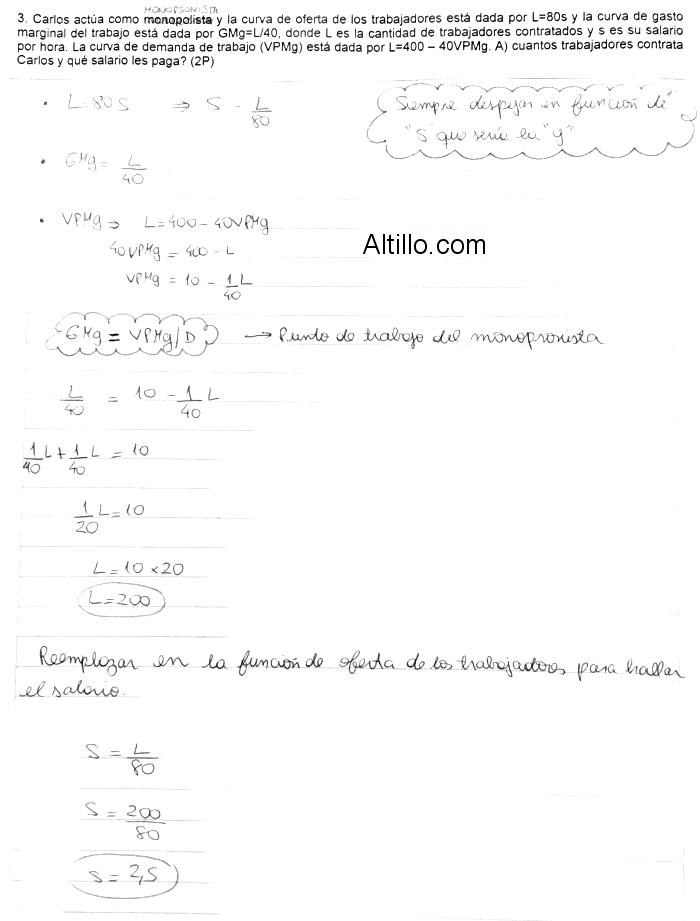 MONOPSONISTA
3. Carlos actúa como monopolista y la curva de oferta de los trabajadores está dada por L=80s y la curva de gasto
marginal del trabajo está dada por GMg=L/40, donde L es la cantidad de trabajadores contratados y s es su salario
por hora. La curva de demanda de trabajo (VPMg) está dada por L=400 – 40VPMg. A) cuantos trabajadores contrata
Carlos y qué salario les paga? (2P)
• L=80S ⇒ S - L/80
Siempre despejar en función de
"S" que sería la "y"
• GMg = L/40
• VPMg ⇒ L=400-40VPMg
40VPMg = 400 - L
VPMg = 10 - 1/40 L
Altillo.com
GMg = VPMg/D → Punto de trabajo del monopronista
L/40 = 10 - 1/40 L
1/40 L + 1/40 L = 10
1/20 L = 10
L = 10 x 20
L = 200
Reemplazar en la función de oferta de los trabajadores para hallar
el salario.
S = L/80
S = 200/80
S = 2,5